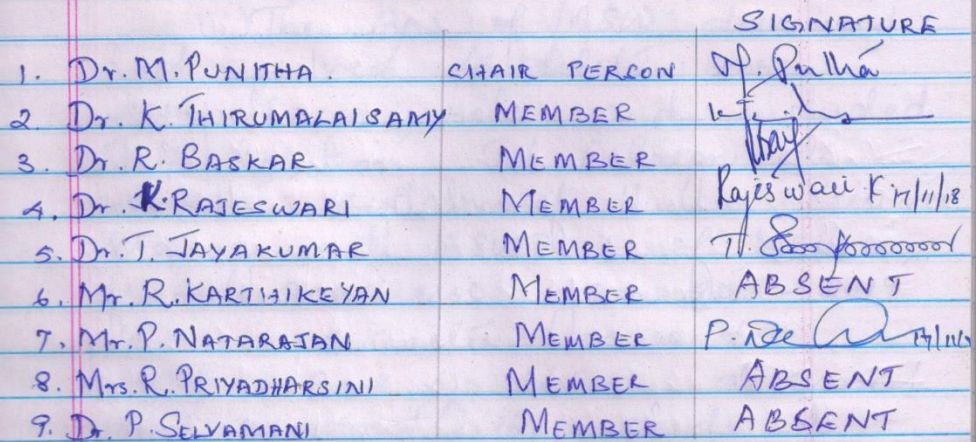 SIGNATURE
1. Dr. M. PUNITHA. CHAIR PERSON
2. Dr. K. THIRUMALAISAMY MEMBER
3. Dr. R. BASKAR MEMBER
4. Dr. K. RAJESWARI MEMBER Rajeswari K 17/11/18
5. Dr. T. JAYAKUMAR MEMBER
6. Mr. R. KARTHIKEYAN MEMBER ABSENT
7. Mr. P. NATARAJAN MEMBER
8. Mrs. R. PRIYADHARSINI MEMBER ABSENT
9. Dr. P. SELVAMANI MEMBER ABSENT